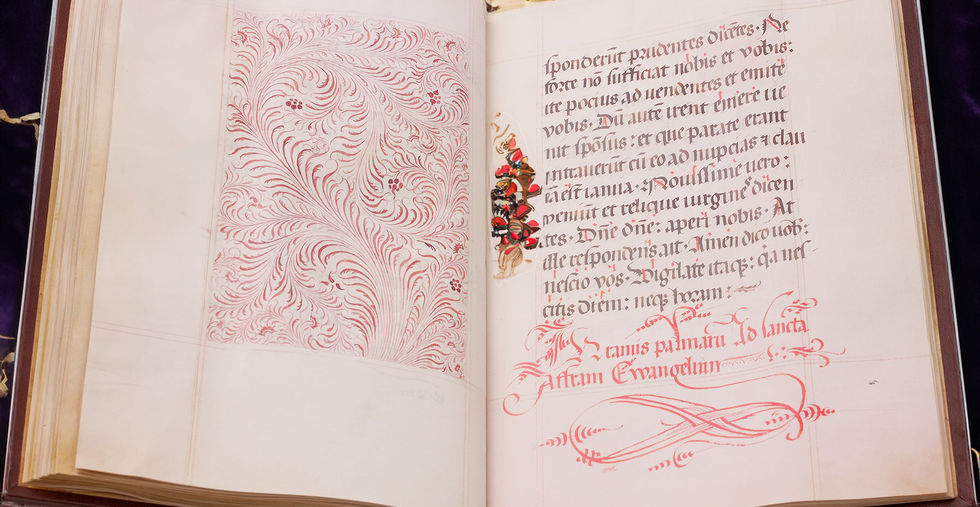 sponderūt prudentes dicētes · Ne
forte nō sufficiat nobis et vobis:
ite pocius ad vendentes et emite
vobis · Dū autē irent emere ve
nit spōsus : et que parate erant
intrauerūt cū eo ad nupcias ⁊ clau
sa est ianua · Nouissime vero :
veniūt et relique virgines dicen
tes · Dn̄e dn̄e : aperi nobis · At
ille respondens ait · Amen dico vob̄:
nescio vos · Vigilate itaqꝫ : qa nes
citis diem : neqꝫ horam :
In ramis palmarū Ad sancta
Affram Ewangelium